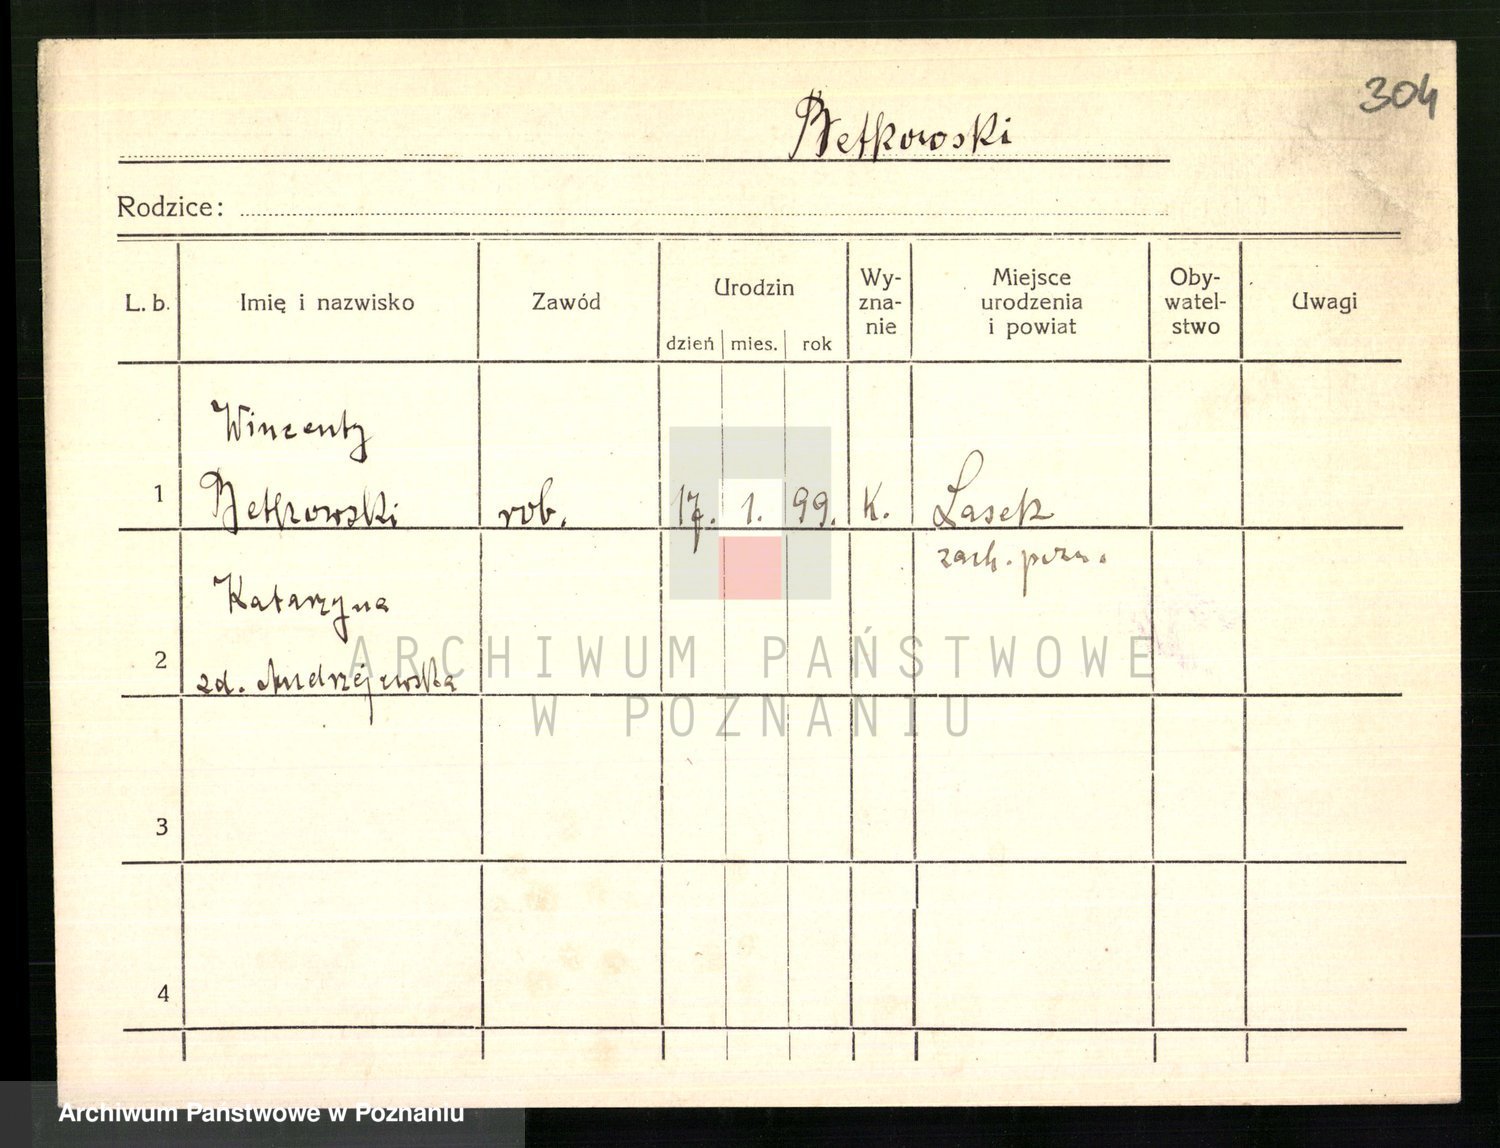 304
Betkowski
Rodzice:
L. b.
Imię i nazwisko
Zawód
Urodzin
dzień
mies.
rok
Wy-
zna-
nie
Miejsce
urodzenia
i powiat
Oby-
watel-
stwo
Uwagi
Wincenty
1
Betkowski
rob.
17. 1. 99.
K.
Lasek
zach. pozn.
Katarzyna
2
zd. Andrzejewska
3
4
ARCHIWUM PAŃSTWOWE
W POZNANIU
Archiwum Państwowe w Poznaniu